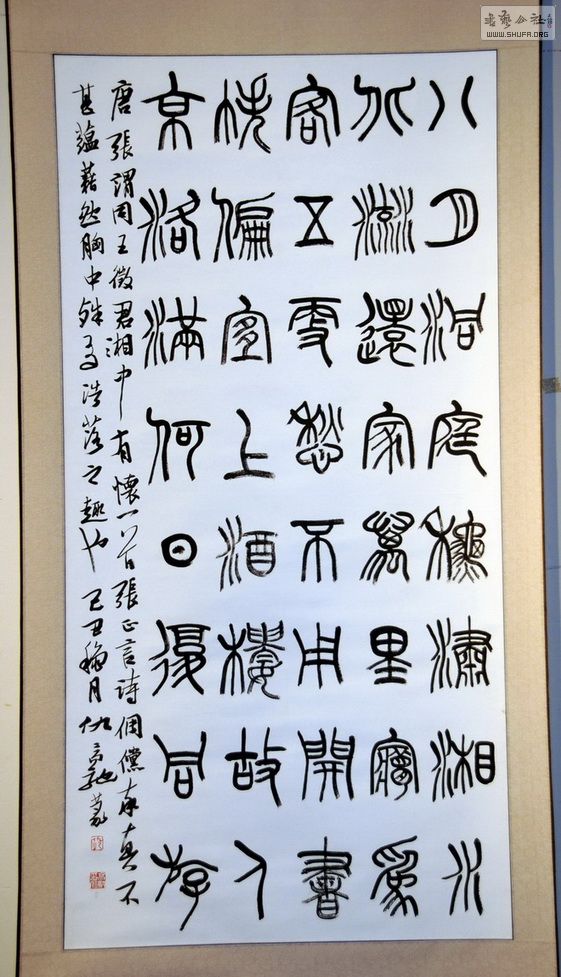 八月洞庭秋瀟湘水
北流還家萬里夢為
客五更愁不用開書
帙偏宜上酒樓故人
京洛滿何日復同遊
唐張謂同王徵君湘中有懷一首張正言詩倜儻率真不
甚蘊藉然胸中殊有浩落之趣也 己丑穐月仇高馳篆
書藝公社
WWW.SHUFA.ORG